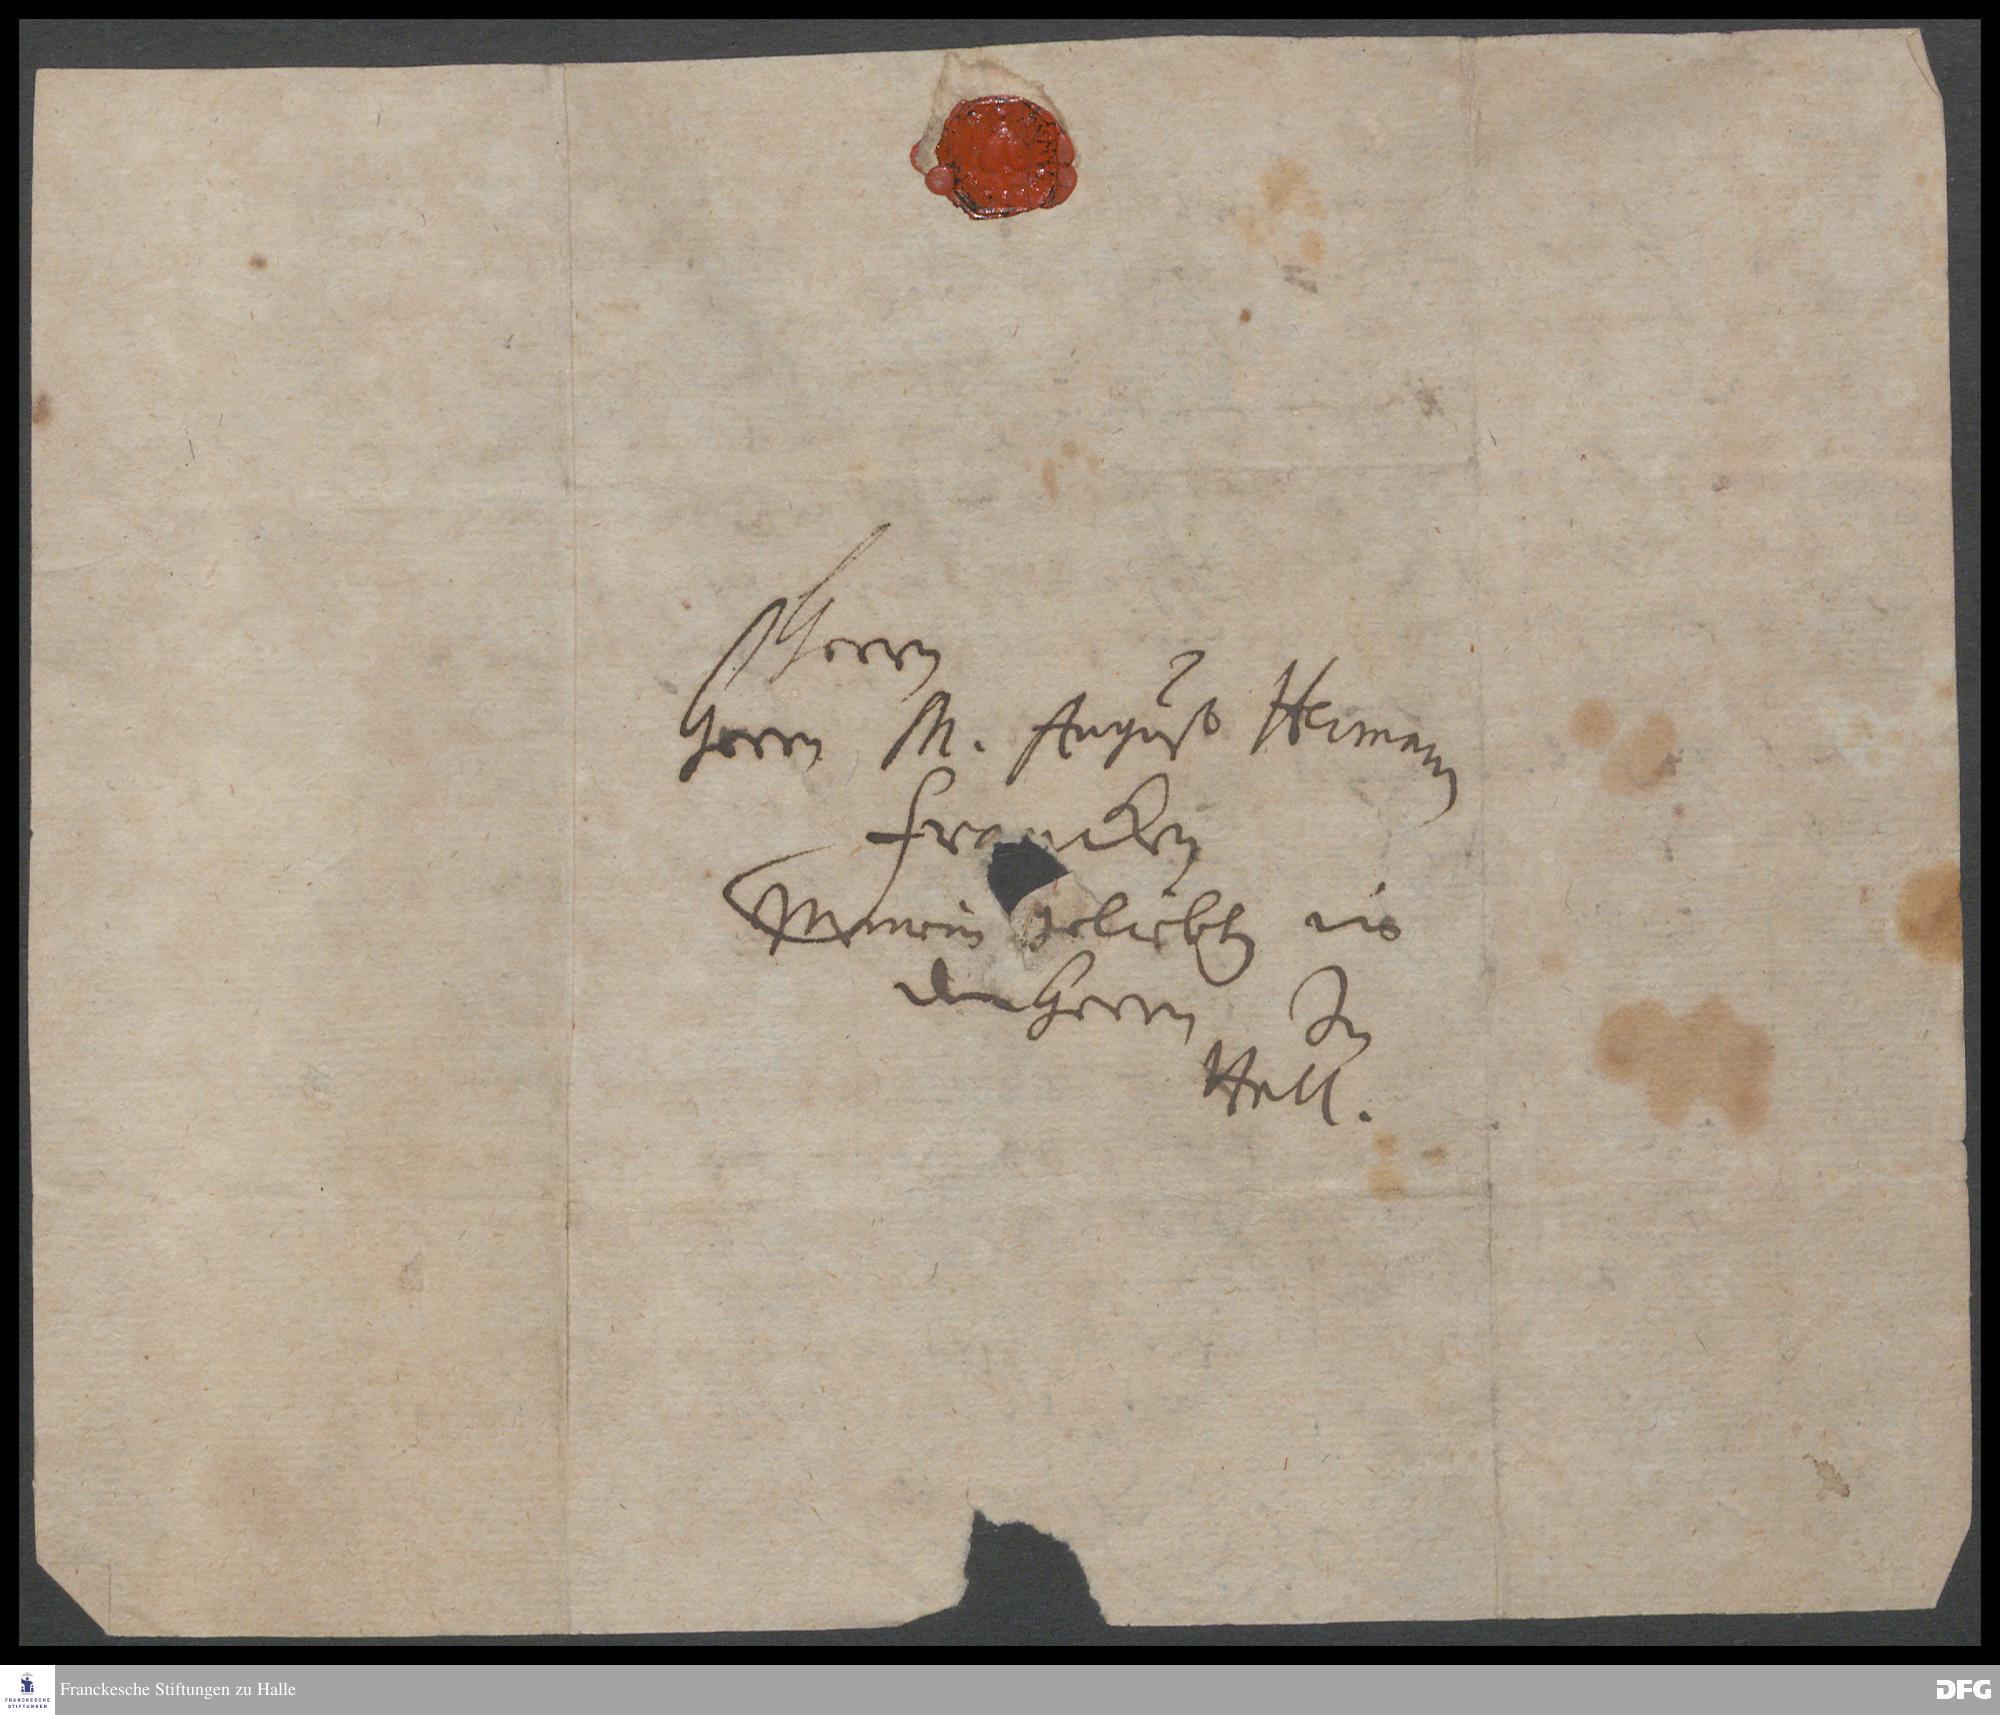 Herrn
Herrn M. August Herman
Francken
Meinem geliebten in
dem Herrn In
Hall.
Franckesche Stiftungen zu Halle
FRANCKESCHE
STIFTUNGEN
DFG